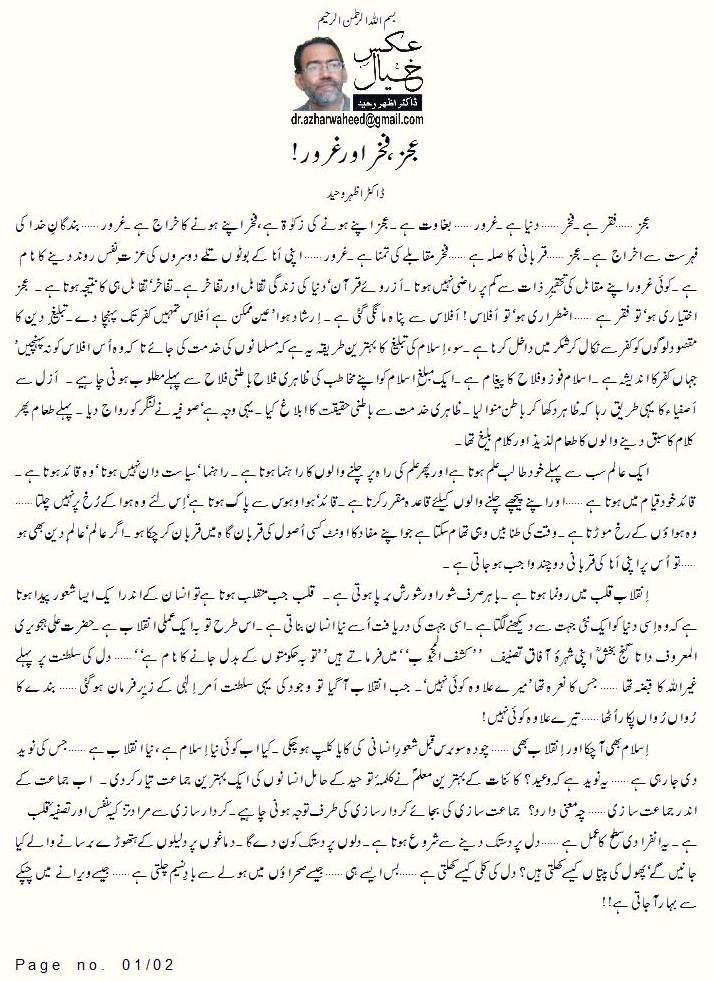 بسم اللہ الرحمٰن الرحیم
عکس
خیال
ڈاکٹر اظہر وحید
dr.azharwaheed@gmail.com
عجز، فخر اور غرور!
ڈاکٹر اظہر وحید
عجز ...... فقر ہے۔ فخر ...... دنیا ہے۔ غرور ...... بغاوت ہے۔ عجز اپنے ہونے کی زکوٰۃ ہے، فخر اپنے ہونے کا خراج ہے۔ غرور ...... بندگانِ خدا کی
فہرست سے اخراج ہے۔ عجز ...... قربانی کا صلہ ہے ...... فخر مقابلے کی تمنا ہے۔ غرور ...... اپنی اَنا کے بوٹوں تلے دوسروں کی عزتِ نفس روند دینے کا نام
ہے۔ کوئی غرور اپنے مقابل کی تحقیرِ ذات سے کم پر راضی نہیں ہوتا۔ اَزروئے قرآن‘ دنیا کی زندگی تقابل اور تفاخر ہے۔ تفاخر‘ تقابل ہی کا نتیجہ ہوتا ہے۔ عجز
اختیاری ہو‘ تو فقر ہے ...... اضطراری ہو‘ تو اَفلاس! اَفلاس سے پناہ مانگی گئی ہے۔ اِرشاد ہوا ’عین ممکن ہے اَفلاس تمہیں کفر تک پہنچا دے۔ تبلیغِ دین کا
مقصود لوگوں کو کفر سے نکال کر شکر میں داخل کرنا ہے۔ سو، اِسلام کی تبلیغ کا بہترین طریقہ یہ ہے کہ مسلمانوں کی خدمت کی جائے تا کہ وہ اُس اَفلاس کو نہ پہنچیں‘
جہاں کفر کا اندیشہ ہے۔ اسلام فوز و فلاح کا پیغام ہے۔ ایک مبلغِ اسلام کو اپنے مخاطب کی ظاہری فلاح باطنی فلاح سے پہلے مطلوب ہونی چاہیے۔ اَزل سے
اَصفیاء کا یہی طریق رہا کہ ظاہر دکھا کر باطن منوا لیا۔ ظاہری خدمت سے باطنی حقیقت کا ابلاغ کیا۔ یہی وجہ ہے‘ صوفیہ نے لنگر کو رواج دیا۔ پہلے طعام پھر
کلام کا سبق دینے والوں کا طعام لذیذ اور کلام بلیغ تھا۔
ایک عالم سب سے پہلے خود طالب علم ہوتا ہے اور پھر علم کی راہ پر چلنے والوں کا راہنما ہوتا ہے۔ راہنما‘ سیاست دان نہیں ہوتا‘ وہ قائد ہوتا ہے۔
قائد خود قیام میں ہوتا ہے ...... اور اپنے پیچھے چلنے والوں کیلئے قاعدہ مقرر کرتا ہے۔ قائد‘ ہوا و ہوس سے پاک ہوتا ہے‘ اِس لئے وہ ہوا کے رُخ پر نہیں چلتا ......
وہ ہواؤں کے رخ موڑتا ہے۔ وقت کی طنابیں وہی تھام سکتا ہے جو اپنے مفاد کا اونٹ کسی اُصول کی قربان گاہ میں قربان کر چکا ہو۔ اگر عالم‘ عالمِ دین بھی ہو
...... تو اُس پر اپنی اَنا کی قربانی دو چند واجب ہو جاتی ہے۔
اِنقلاب قلب میں رونما ہوتا ہے۔ باہر صرف شور اور شورش برپا ہوتی ہے۔ قلب جب منقلب ہوتا ہے تو انسان کے اندر ایک ایسا شعور پیدا ہوتا
ہے کہ وہ اِسی دنیا کو ایک نئی جہت سے دیکھنے لگتا ہے۔ اسی جہت کی دریافت اُسے نیا انسان بناتی ہے۔ اس طرح توبہ ایک عملی انقلاب ہے۔ حضرت علی ہجویری
المعروف داتا گنج بخشؒ اپنی شہرۂ آفاق تصنیف ”کشف المحجوب“ میں فرماتے ہیں ”توبہ حکومتوں کے بدل جانے کا نام ہے“ ...... دل کی سلطنت پر پہلے
غیر اللہ کا قبضہ تھا ...... جس کا نعرہ تھا ’میرے علاوہ کوئی نہیں‘۔ جب انقلاب آ گیا تو وجود کی یہی سلطنت اَمرِ اِلٰہی کے زیرِ فرمان ہو گئی ...... بندے کا
رُواں رُواں پکار اُٹھا ...... تیرے علاوہ کوئی نہیں!
اِسلام بھی آ چکا اور اِنقلاب بھی ...... چودہ سو برس قبل شعورِ انسانی کی کایا کلپ ہو چکی۔ کیا اب کوئی نیا اِسلام ہے، نیا انقلاب ہے ...... جس کی نوید
دی جا رہی ہے ...... یہ نوید ہے کہ وعید؟ کائنات کے بہترین معلمؐ نے کلمۂ توحید کے حامل انسانوں کی ایک بہترین جماعت تیار کر دی۔ اب جماعت کے
اندر جماعت سازی ...... چہ معنی دارد؟ جماعت سازی کی بجائے کردار سازی کی طرف توجہ ہونی چاہیے۔ کردار سازی سے مراد تزکیۂ نفس اور تصفیۂ قلب
ہے۔ یہ انفرادی سطح کا عمل ہے ...... دل پر دستک دینے سے شروع ہوتا ہے۔ دلوں پر دستک کون دے گا۔ دماغوں پر دلیلوں کے ہتھوڑے برسانے والے کیا
جانیں گے‘ پھول کی پتیاں کیسے کھلتی ہیں؟ دل کی کلی کیسے کھلتی ہے ...... بس ایسے ہی ...... جیسے صحراؤں میں ہولے سے بادِ نسیم چلتی ہے ...... جیسے ویرانے میں چپکے
سے بہار آ جاتی ہے!!
Page no. 01/02